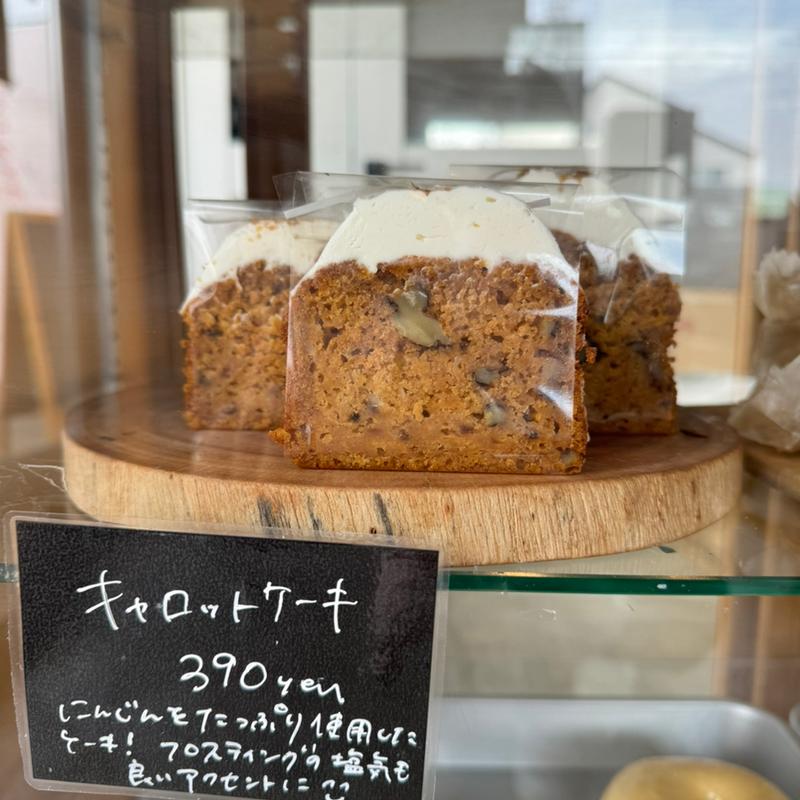 キャロットケーキ
390yen
にんじんをたっぷり使用した
ケーキ! フロスティングの塩気も
良いアクセントに